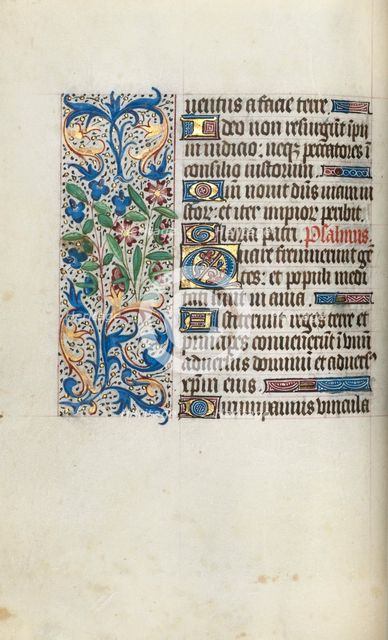 uentus a facie terre
Ideo non resurgūt ipii
in iudicio: neqz peccatores ī
consilio iustorum
Qm nouit dñs viam iu
stor: et iter impior peribit
Gloria patri Psalmus
Quare fremuerunt gē
tes: et populi medi
tati sunt in ania
Astiterunt reges terre et
principes conuenerūt ī vnū
aduersus dominū et aduers
xpm eius
Dirumpamus vincula